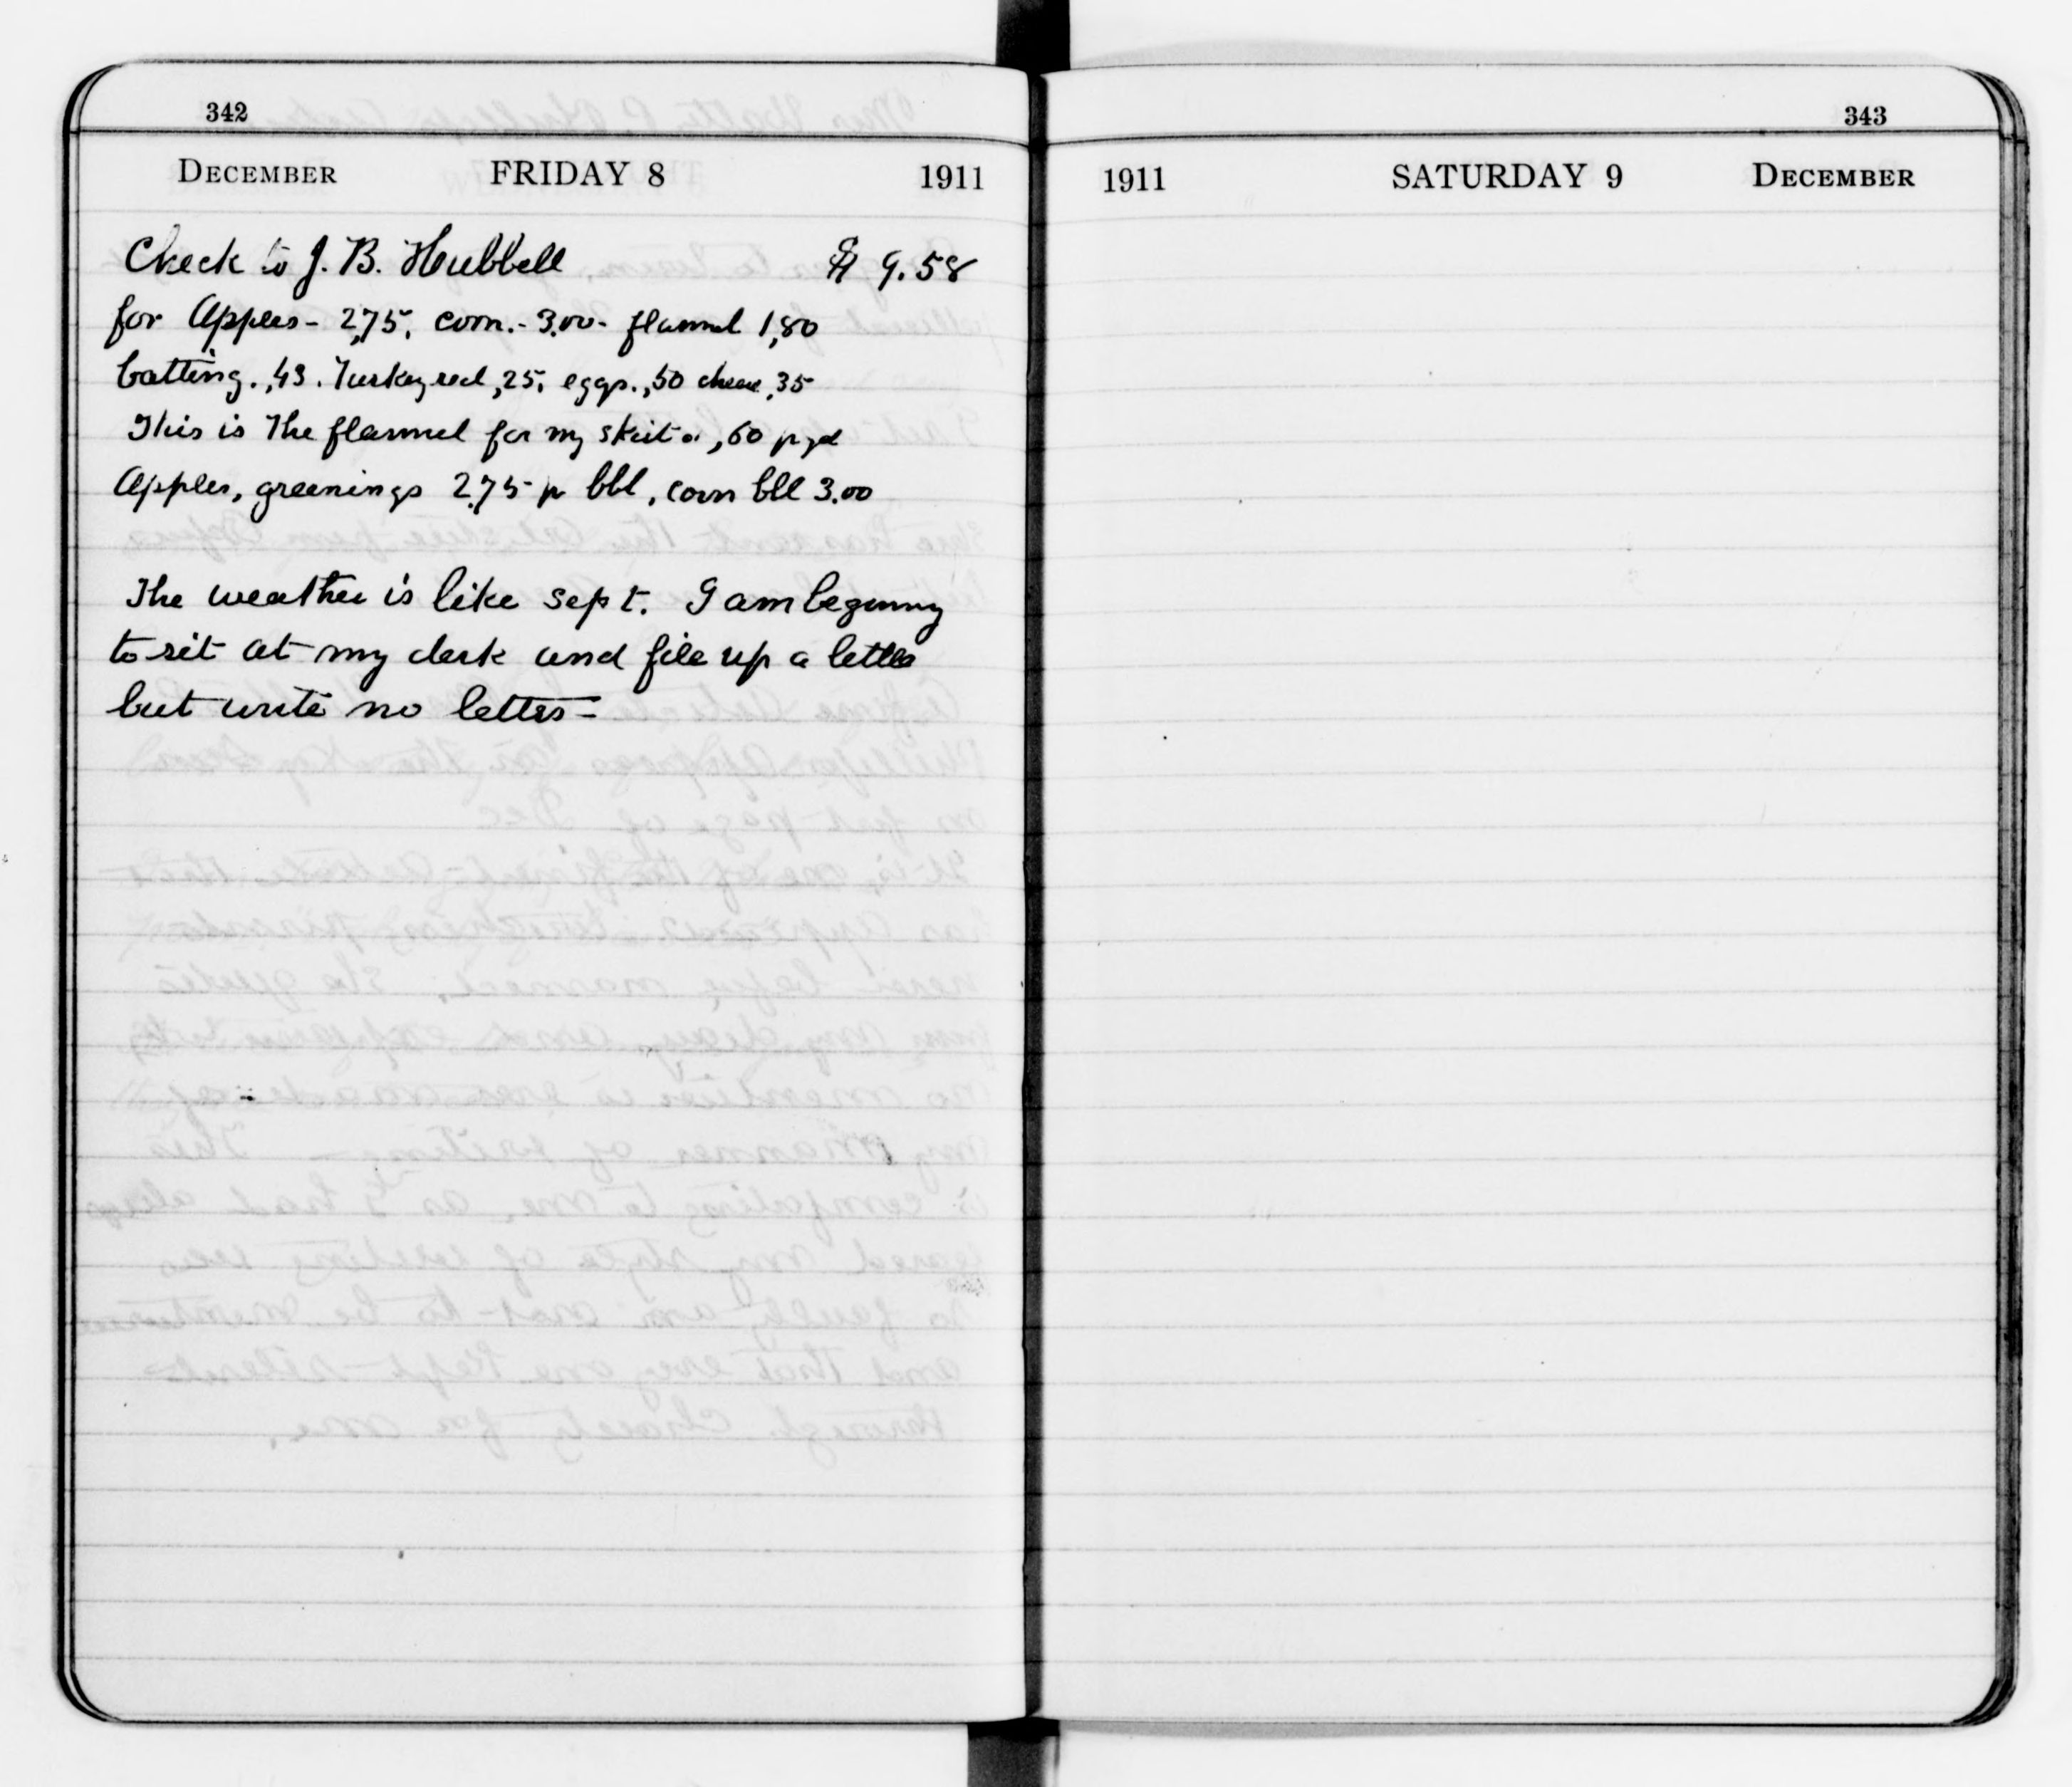 342
DECEMBER FRIDAY 8 1911
Check to J. B. Hubbell $ 9.58
for Apples - 2,75, corn. - 3.00 - flannel 1,80
batting. ,43. Turkey red ,25, eggs. ,50 cheese .35
This is the flannel for my skirt ,60 p yd
Apples, greenings 2.75 p bbl, corn bll 3.00
The weather is like Sept. I am beginny
to sit at my desk and file up a little
but write no letters -
343
1911 SATURDAY 9 DECEMBER